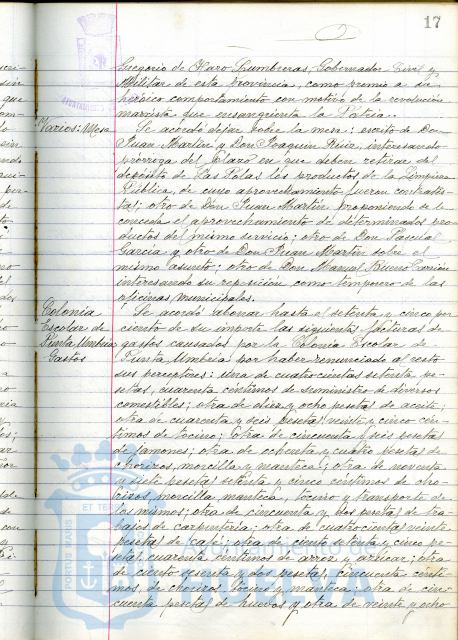 17
Gregorio de Haro Lumbreras, Gobernador Civil y
Militar de esta provincia, como premio a su
heróico comportamiento con motivo de la revolución
marxista que ensangrienta la Patria.
Varios: Mesa
Se acordó dejar sobre la mesa: escrito de Don
Juan Martín y Don Joaquín Ruiz, interesando
prórroga del plazo en que deben retirar del
depósito de Las Palas los productos de la Limpieza
Pública, de cuyo aprovechamiento fueron contratis-
tas; otro de Don Juan Martín proponiendo se le
conceda el aprovechamiento de determinados pro-
ductos del mismo servicio; otro de Don Pascual
García y otro de Don Juan Martín sobre el
mismo asunto; otro de Don Manuel Bueno
interesando su reposición como temporero de las
oficinas municipales.
Colonia
Escolar de
Punta Umbría
Gastos
Se acordó abonar hasta el setenta y cinco por
ciento de su importe las siguientes facturas de
gastos causados por la Colonia Escolar de
Punta Umbría por haber renunciado al resto
sus perceptores: una de cuatrocientas setenta pe-
setas, cuarenta céntimos de suministro de diversos
comestibles; otra de diez y ocho pesetas de aceite;
otra de cuarenta y seis pesetas veinte y cinco cén-
timos de tocino; otra de cincuenta y seis pesetas
de jamones; otra de ochenta y cuatro pesetas de
chorizos, morcilla y manteca; otra de noventa
y siete pesetas setenta y cinco céntimos de cho-
rizos, morcilla, manteca, tocino y transporte de
los mismos; otra de cincuenta y dos pesetas de tra-
bajos de carpintería; otra de cuatrocientas veinte
pesetas de café; otra de ciento setenta y cinco pe-
setas, cuarenta céntimos de arroz y azúcar; otra
de ciento y dos pesetas, cincuenta cénti-
mos, de chorizos, tocino y manteca; otra de cin-
cuenta pesetas de huevos y otra de veinte y ocho